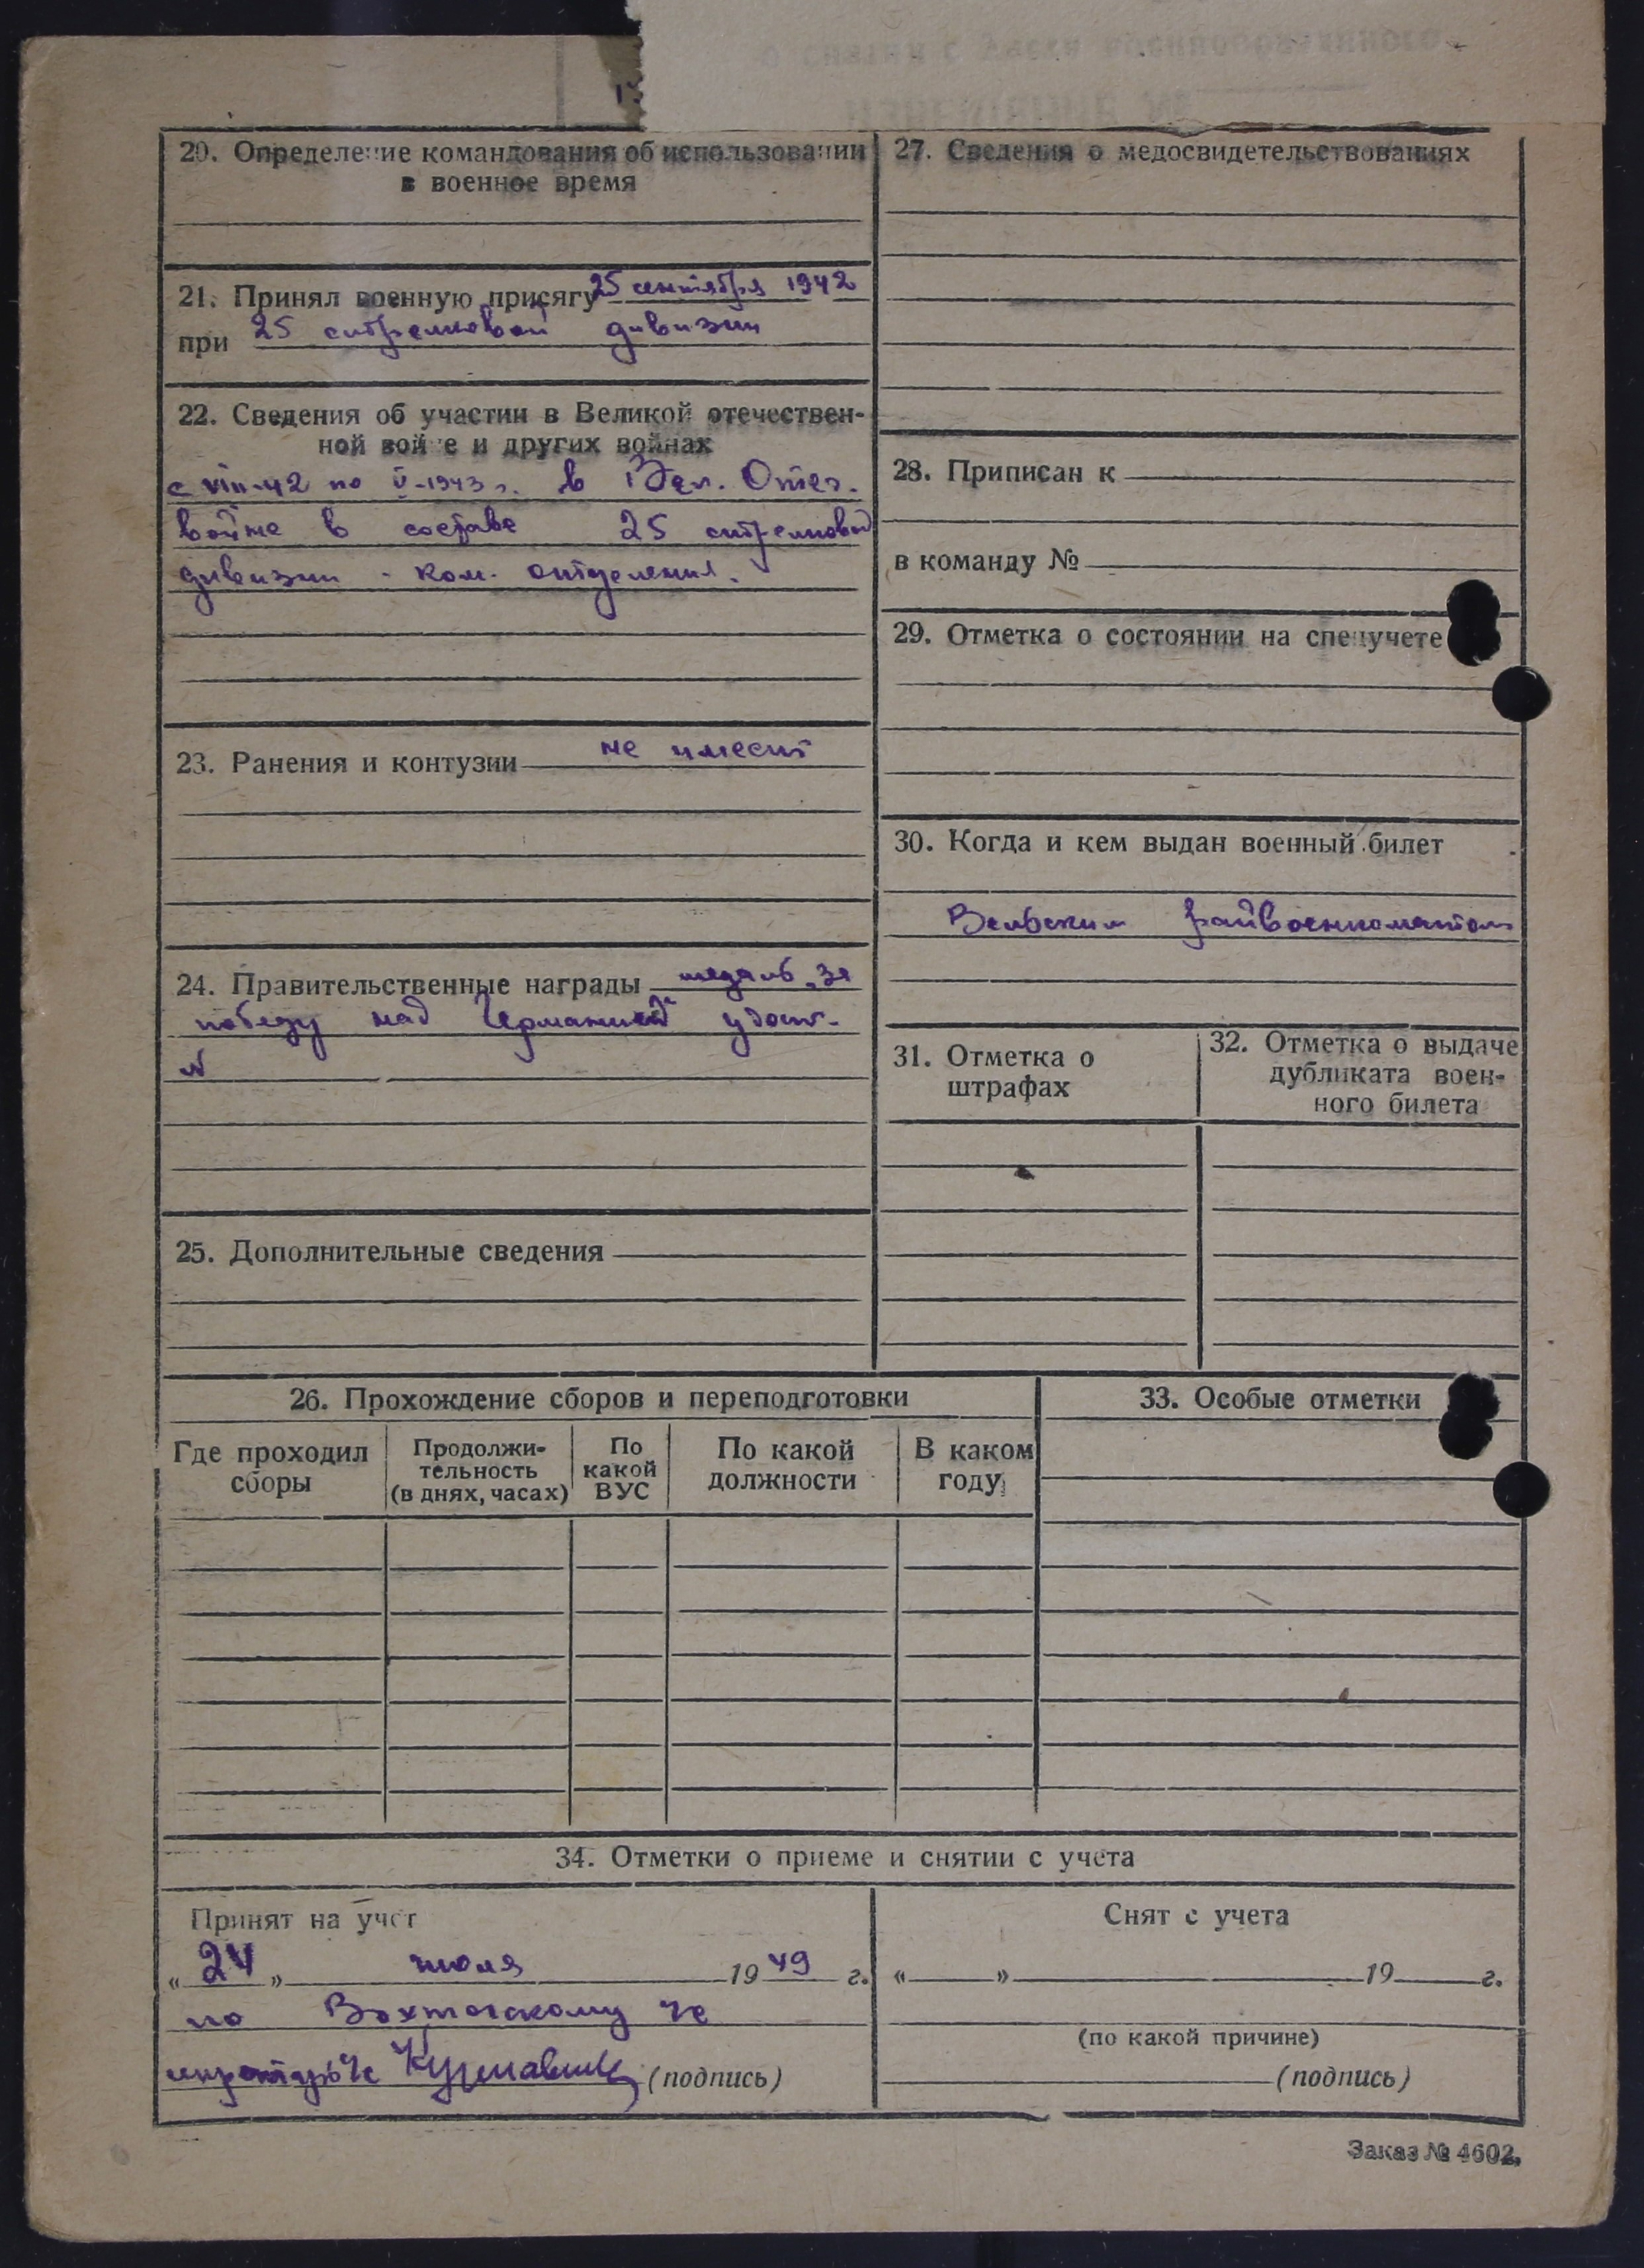 о снятии с учета военнообязанного
ИЗВЕЩЕНИЕ №
20. Определение командования об использовании
в военное время
21. Принял военную присягу 25 сентября 1942
при 25 стрелковой дивизии
22. Сведения об участии в Великой отечествен-
ной войне и других войнах
с VIII-42 по V-1943 г. в Вел. Отеч.
войне в составе 25 стрелковой
дивизии - ком. отделения.
23. Ранения и контузии не имеет
24. Правительственные награды медаль „За
победу над Германией" удост.
№
25. Дополнительные сведения
27. Сведения о медосвидетельствованиях
28. Приписан к
в команду №
29. Отметка о состоянии на спецучете
30. Когда и кем выдан военный билет
Вельским райвоенкоматом
31. Отметка о
штрафах
32. Отметка о выдаче
дубликата воен-
ного билета
26. Прохождение сборов и переподготовки
Где проходил
сборы
Продолжи-
тельность
(в днях, часах)
По
какой
ВУС
По какой
должности
В каком
году
33. Особые отметки
34. Отметки о приеме и снятии с учета
Принят на учет
« 24 » июля 19 49 г.
по Вохтогскому
(подпись)
Снят с учета
« » 19 г.
(по какой причине)
(подпись)
Заказ № 4602.